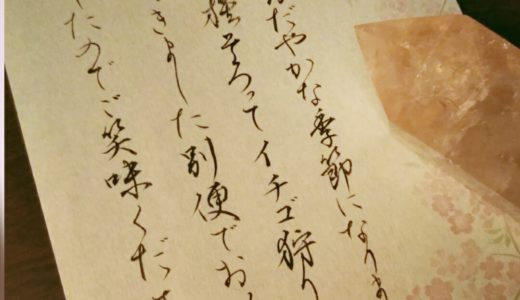 だやかな季節になりま
種そろってイチゴ狩り
きました別便でお
たのでご笑味くださ